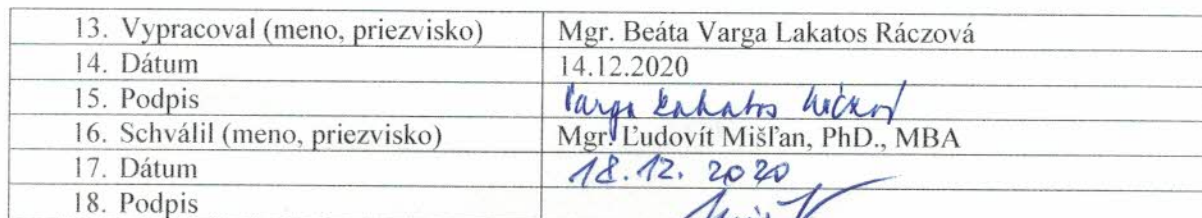 13. Vypracoval (meno, priezvisko) Mgr. Beáta Varga Lakatos Ráczová
14. Dátum 14.12.2020
15. Podpis Varga Lakatos
16. Schválil (meno, priezvisko) Mgr. Ľudovít Mišľan, PhD., MBA
17. Dátum 18.12.2020
18. Podpis